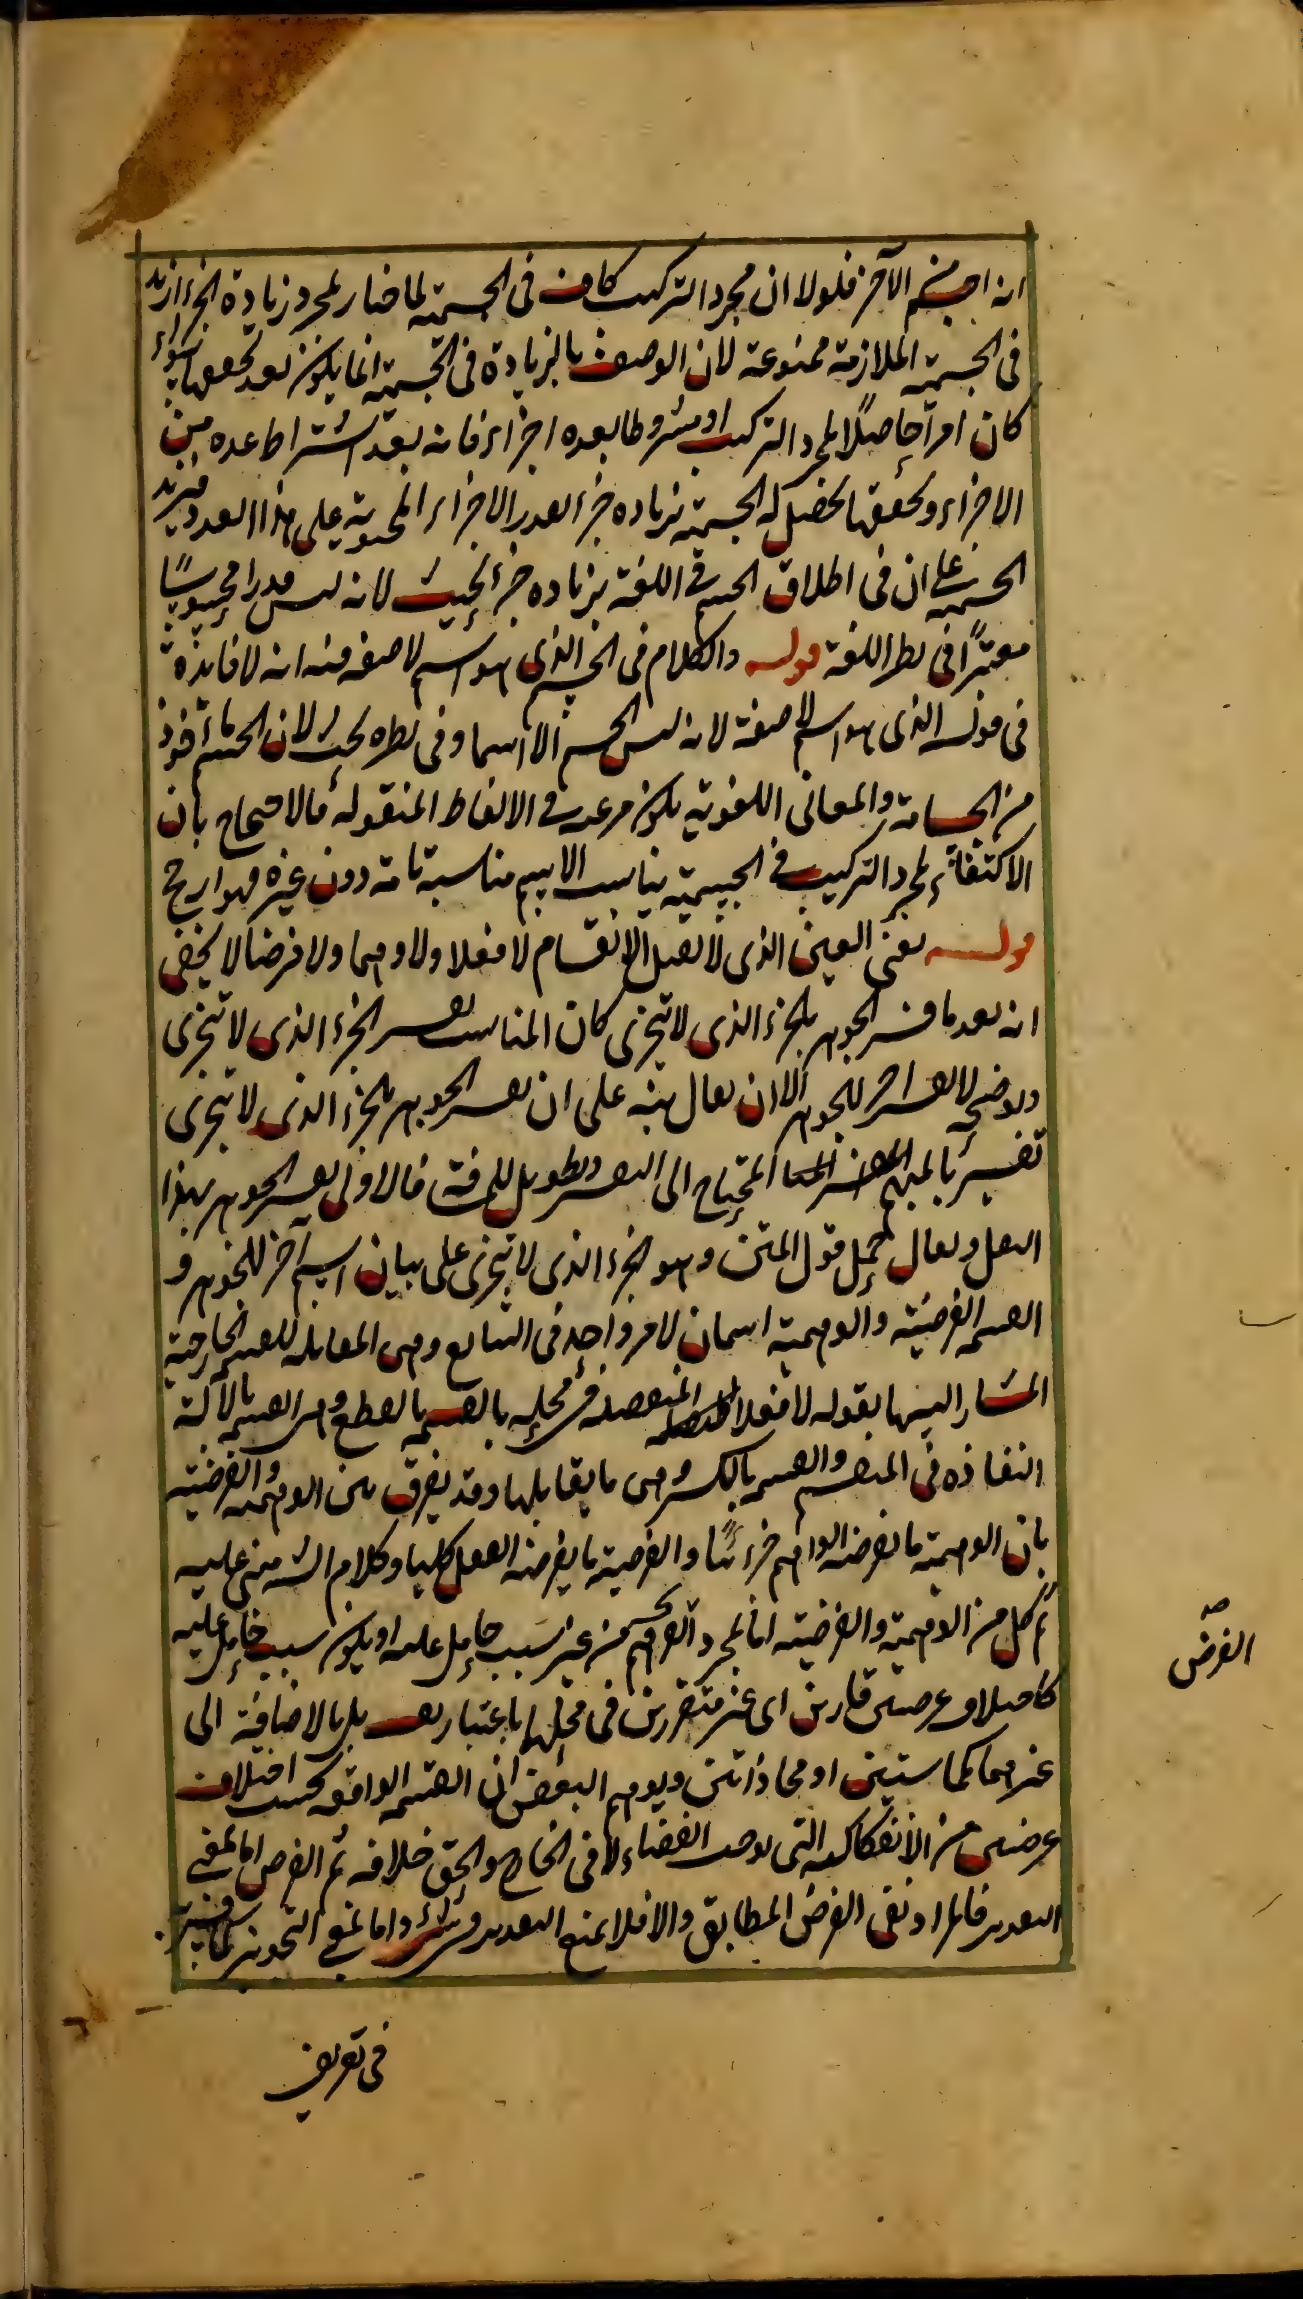 انه اجسم من الآخر فلولا ان مجرد التركيب كاف فى الجسمية لما صار لمجرد زيادة الجزء ازيد
فى الجسمية الملازمة ممنوعة لان الوصف بالزيادة فى الجسمية انما يكون بعد تحققها سواء
كان امرا حاصلا لمجرد التركيب او مشروطا بعدة اجزاء فانه بعد اشتراط عدة من
الاجزاء وتحققها تحصل له الجسمية بزيادة جزء الاجزاء المحتوية على هذا العدد فيزيد
الجسمية على ان فى اطلاق الجسم فى اللغة بزيادة جزء لجيث لانه ليس قدرا محسوسا
معتبرا فى نظر اللغة قوله والكلام فى الجسم الذى هو اسم لا صفة فيه انه لا فائدة
فى قوله الذى هو اسم لا صفة لانه ليس الجسم الا اسما وفى نظره بحث لان الجسم مأخوذ
من الجسامة والمعانى اللغوية يكون مرعية فى الالفاظ المنقولة فالاحتجاج بان
الاكتفاء بمجرد التركيب فى الجسمية يناسب الاسم مناسبة تامة دون غيره فهو ارجح
قوله يعنى العين الذى لا يقبل الانقسام لا فعلا ولا وهما ولا فرضا لا يخفى
انه بعد ما فسر الجوهر بالجزء الذى لا يتجزى كان المناسب تفسير الجزء الذى لا يتجزى
وتوضيحه لا تفسير آخر للجوهر الا ان يقال نبه على ان تفسير الجوهر بالجزء الذى لا يتجزى
تفسير بالمبهم المحتاج الى التفسير وتطويل للمسافة فالاولى تفسير الجوهر بهذا
القول ويقال يحمل قول المتن وهو الجزء الذى لا يتجزى على بيان اسم آخر للجوهر و
القسمة الفرضية والوهمية اسمان لامر واحد فى الشايع وهى المقابلة للقسمة الخارجية
المشار اليها بقوله لا فعلا المنفصلة فى محله بالقسمة بالقطع وهى القسمة بالآلة
النفاذة فى المنقسم والقسمة بالكسر وهى ما يقابلها وقد يفرق بين الوهمية والفرضية
بان الوهمية ما يفرضه الوهم جزئيا والفرضية ما يفرضه العقل كليا وكلام الشه مبنى عليه
ثم كل من الوهمية والفرضية اما بمجرد من غير سبب حامل عليه او يكون سبب حامل عليه
كاختلاف عرضين قارين اى غير متقررين فى محلها باعتبار نفسه بل بالاضافة الى
غيرهما كمماستين او محاذاتين ويوهم البعض ان القسمة الواقعة بحسب اختلاف
عرضين من الانفكاكية التى توجب الفضاء لا فى الخارج والحق خلافه ثم الفرض اما بمعنى
التقدير فالمراد نفى الفرض المطابق والا فلا يمنع التقدير واما بمعنى التجويز
الفرض صح
فى تعريف